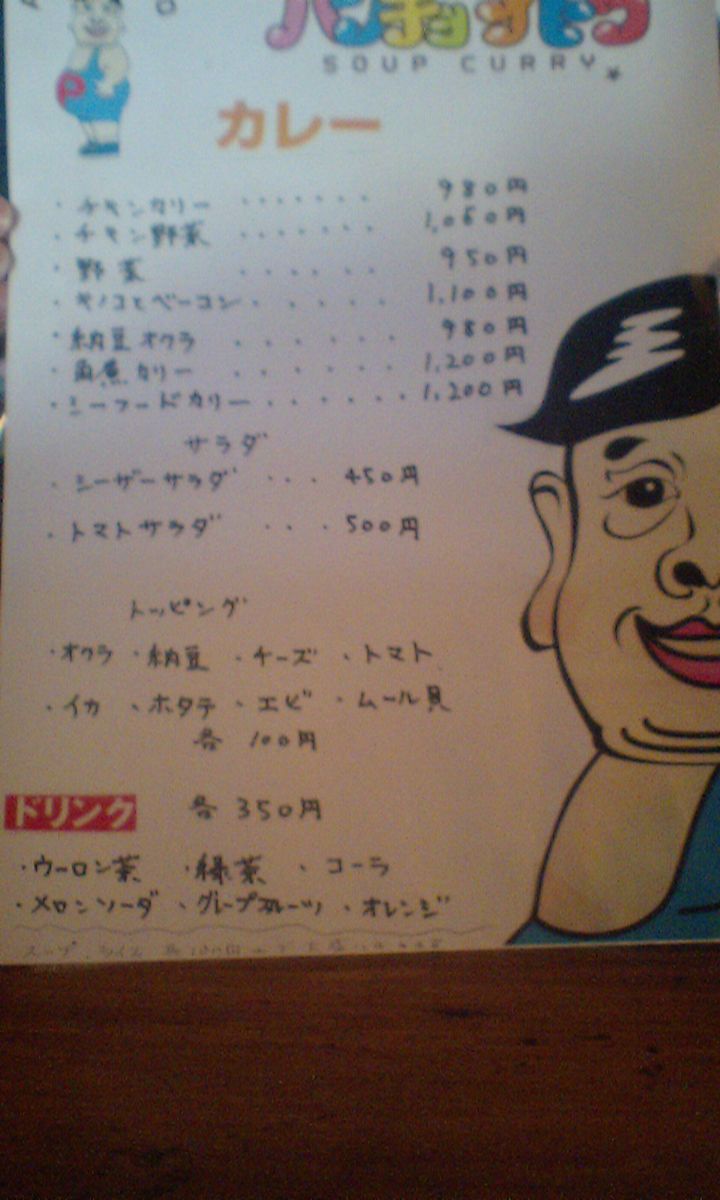 SOUP CURRY
カレー
・チキンカリー ・・・・・・・ 980円
・チキン野菜 ・・・・・・・ 1,060円
・野菜 ・・・・・・ 950円
・キノコとベーコン・・・・・ 1,100円
・納豆オクラ ・・・・・・ 980円
・角煮カリー ・・・・・・ 1,200円
・シーフードカリー・・・・・・ 1,200円
サラダ
・シーザーサラダ ・・・ 450円
・トマトサラダ ・・・ 500円
トッピング
・オクラ ・納豆 ・チーズ ・トマト
・イカ ・ホタテ ・エビ ・ムール貝
各 100円
ドリンク 各 350円
・ウーロン茶 ・緑茶 ・コーラ
・メロンソーダ ・グレープフルーツ ・オレンジ
スープ・ライス 各100円